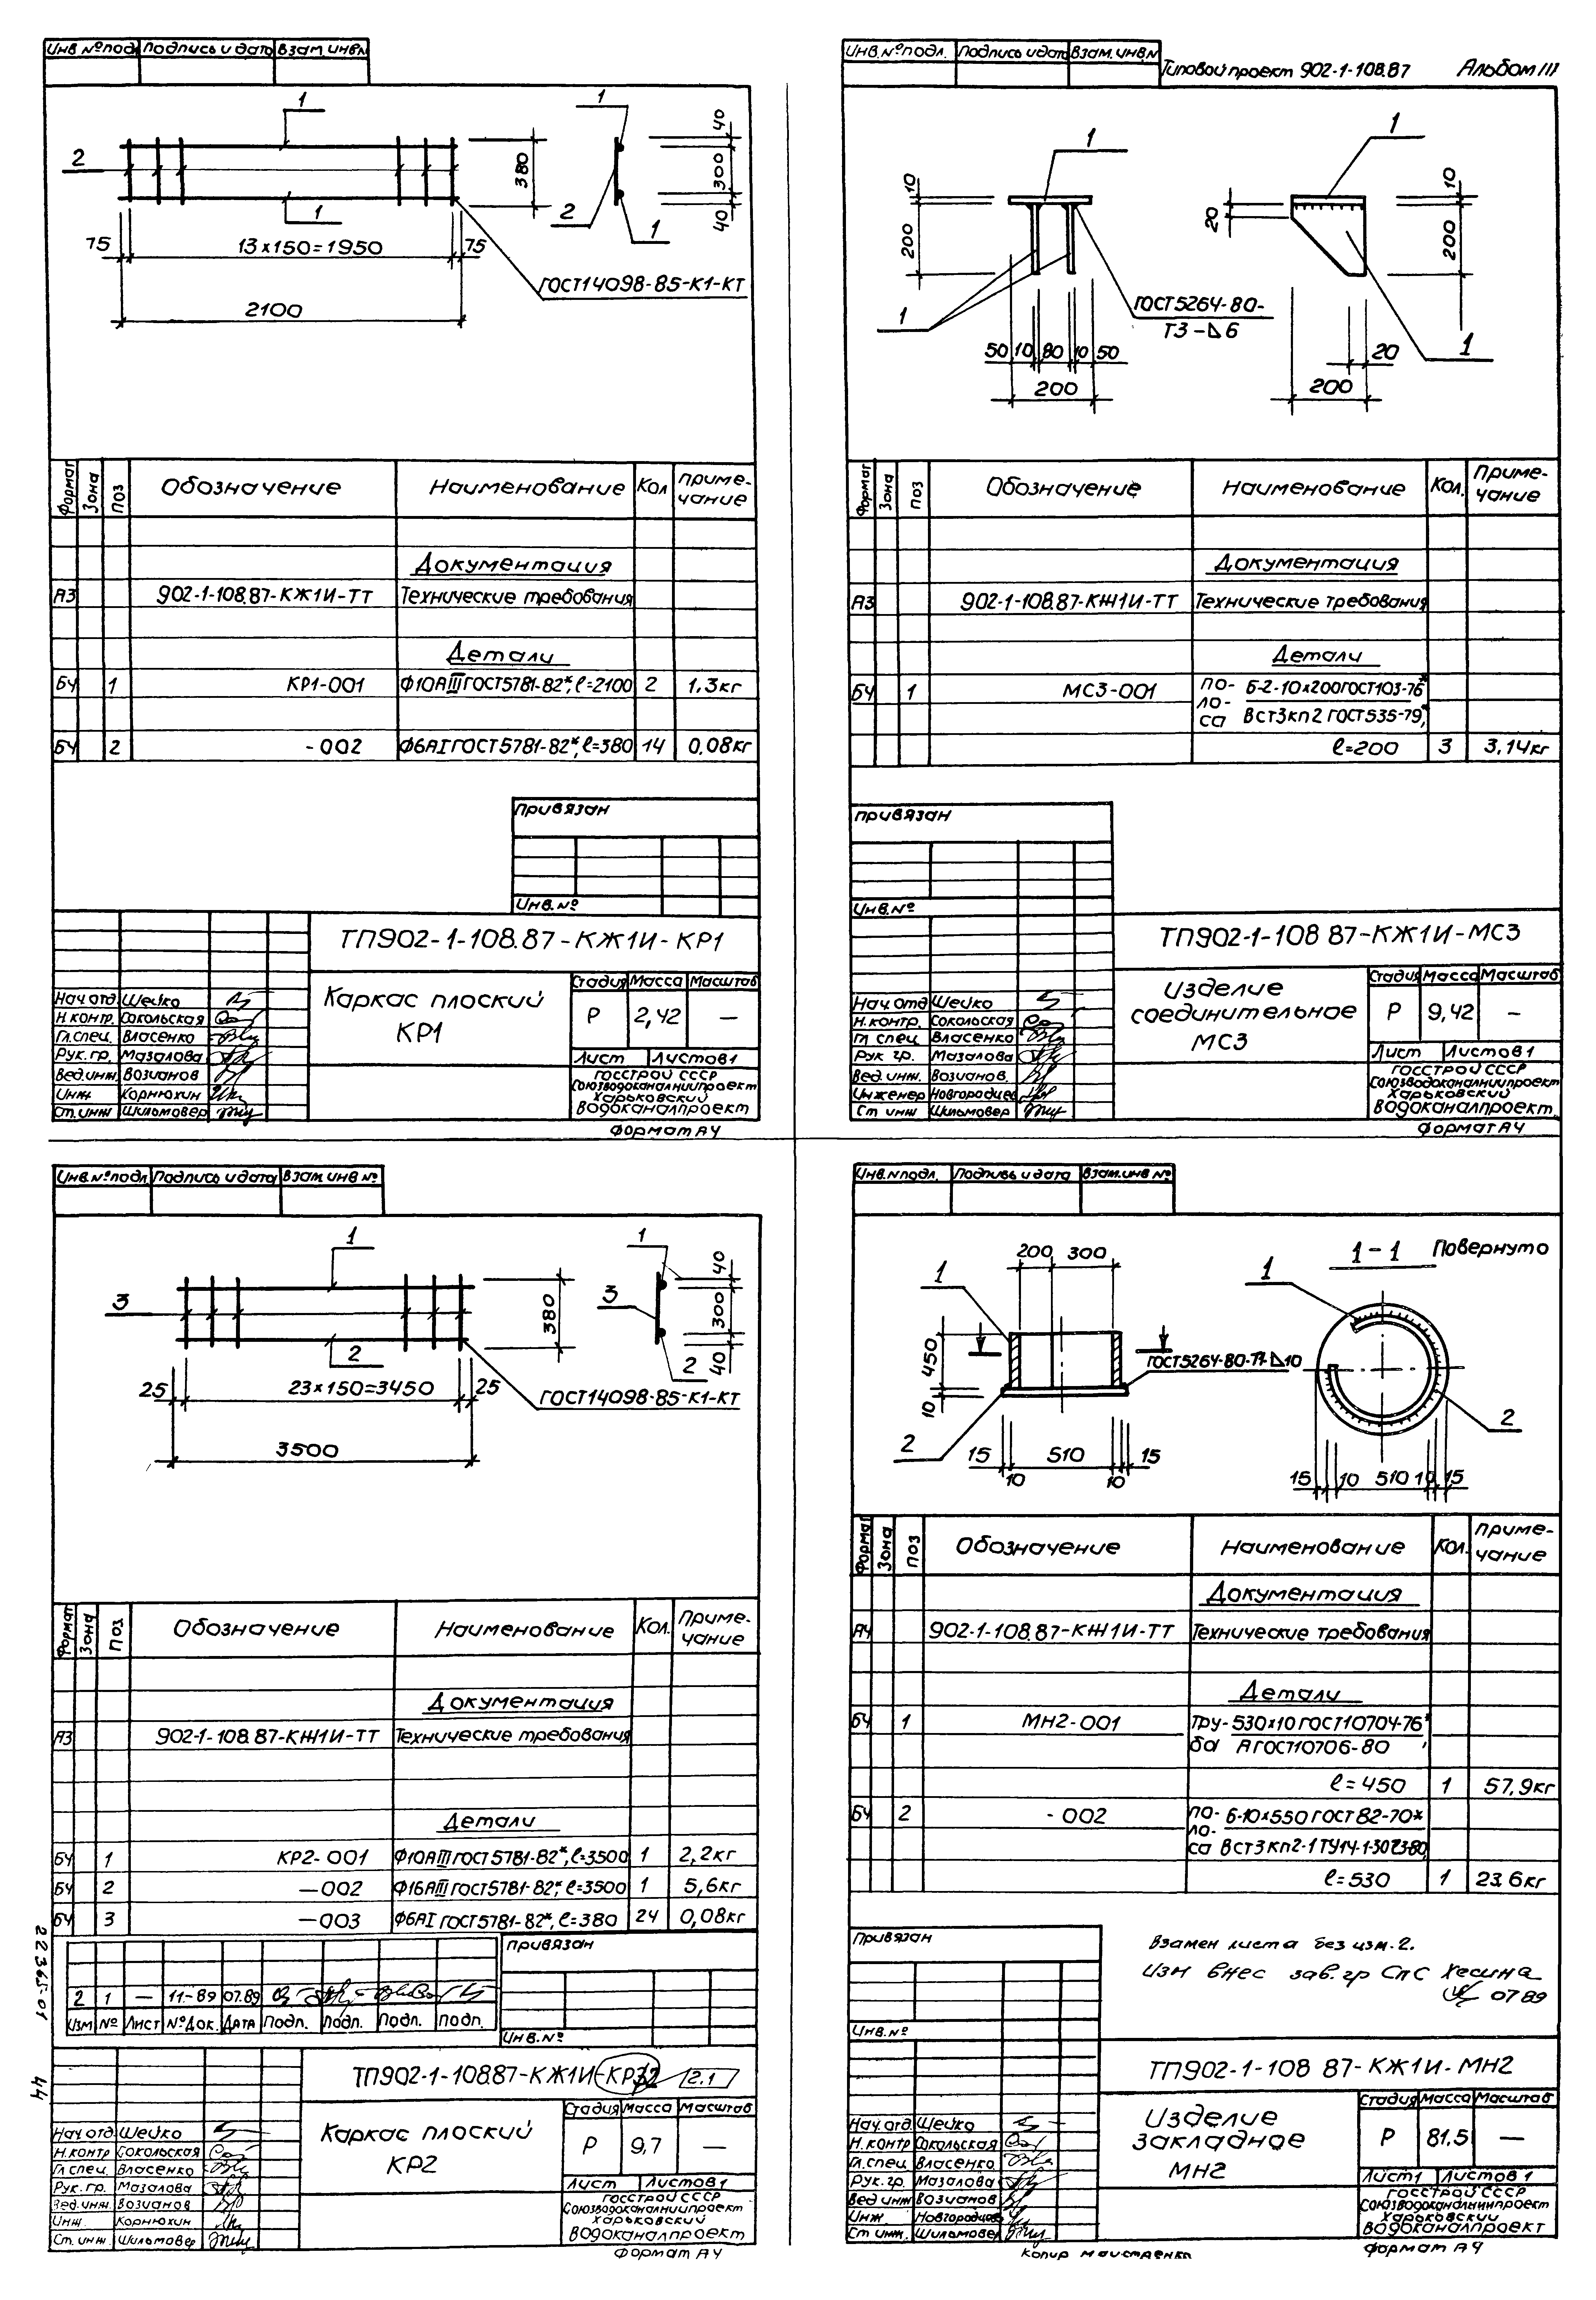 Инв.№подл. Подпись и дата Взам.инв.№
1
2
1
380
1
2
1
40
300
40
75
13х150=1950
75
2100
ГОСТ14098-85-К1-КТ
Формат Зона Поз Обозначение Наименование Кол Приме-
чание
Документация
А3 902-1-108.87-КЖ1И-ТТ Технические требования
Детали
БЧ 1 КР1-001 Ф10АIII ГОСТ5781-82*, ℓ=2100 2 1,3кг
БЧ 2 -002 Ф6АI ГОСТ5781-82*, ℓ=380 14 0,08кг
Привязан
Инв.№
ТП902-1-108.87-КЖ1И-КР1
Нач.отд. Шейко
Н.контр. Сокольская
Гл.спец. Власенко
Рук.гр. Мазалова
Вед.инж. Возианов
Инж Корнюхин
Ст.инж Шильмовер
Каркас плоский
КР1
Стадия Масса Масштаб
Р 2,42 —
Лист Листов1
ГОССТРОЙ СССР
Союзводоканалниипроект
Харьковский
Водоканалпроект
Формат А4
Инв.№подл. Подпись и дата Взам.инв.№
Типовой проект 902-1-108.87 Альбом III
1
10
200
1
50 10 80 10 50
200
ГОСТ5264-80-
Т3-◺6
1
20
10
200
20
1
200
Формат Зона Поз Обозначение Наименование Кол. Приме-
чание
Документация
А3 902-1-108.87-КЖ1И-ТТ Технические требования
Детали
БЧ 1 МС3-001 По- Б-2-10х200ГОСТ103-76*
ло-
са ВСт3кп2 ГОСТ535-79*,
ℓ=200 3 3,14кг
Привязан
Инв.№
ТП902-1-108 87-КЖ1И-МС3
Нач.отд Шейко
Н.контр. Сокольская
Гл спец Власенко
Рук гр. Мазалова
Вед.инж. Возианов.
Инженер Новгородцев
Ст инж Шильмовер
Изделие
соединительное
МС3
Стадия Масса Масштаб
Р 9,42 —
Лист Листов1
ГОССТРОЙ СССР
Союзводоканалниипроект
Харьковский
Водоканалпроект
Формат А4
Инв.№подл. Подпись и дата Взам.инв №
1
3
2
380
1
3
2
40
300
40
25
23х150=3450
25
3500
ГОСТ14098-85-К1-КТ
Формат Зона Поз Обозначение Наименование Кол. Приме-
чание
Документация
А3 902-1-108.87-КЖ1И-ТТ Технические требования
Детали
БЧ 1 КР2-001 Ф10АIII ГОСТ5781-82*, ℓ=3500 1 2,2кг
БЧ 2 —002 Ф16АIII ГОСТ5781-82*, ℓ=3500 1 5,6кг
БЧ 3 —003 Ф6АI ГОСТ5781-82*, ℓ=380 24 0,08кг
2 1 — 11-89 07.89
Изм № Лист №Док. Дата Подп. Подп. Подп. Подп.
Привязан
Инв.№
22365-01
44
ТП902-1-108.87-КЖ1И-КР2 2.1
Нач.отд Шейко
Н.контр Сокольская
Гл.спец. Власенко
Рук.гр. Мазалова
Вед.инж. Возианов
Инж. Корнюхин
Ст.инж. Шильмовер
Каркас плоский
КР2
Стадия Масса Масштаб
Р 9,7 —
Лист Листов 1
ГОССТРОЙ СССР
Союзводоканалниипроект
Харьковский
Водоканалпроект
Формат А4
Инв.№подл. Подпись и дата Взам.инв №
200 300
1
450
10
2
ГОСТ5264-80-Т1-◺10
15 10 510 10 15
1-1 Повернуто
1
2
15 10 510 10 15
Формат Зона Поз Обозначение Наименование Кол. Приме-
чание
Документация
А4 902-1-108.87-КЖ1И-ТТ Технические требования
Детали
БЧ 1 МН2-001 Тру- 530х10 ГОСТ10704-76*
ба А ГОСТ10706-80 ,
ℓ=450 1 57,9кг
БЧ 2 -002 По- Б-10х550 ГОСТ82-70*
ло-
са ВСт3кп2-1 ТУ14-1-3023-80,
ℓ=530 1 23.6кг
Привязан
Инв.№
Взамен листа без изм.2.
Изм внес зав.гр СПС Хесина
07 89
ТП902-1-108 87-КЖ1И-МН2
Нач.отд. Шейко
Н.контр Сокольская
Гл.спец. Власенко
Рук.гр. Мазалова
Вед инж Возианов
Инж Новгородцев
Ст инж. Шильмовер
Изделие
закладное
МН2
Стадия Масса Масштаб
Р 81.5 —
Лист1 Листов 1
ГОССТРОЙ СССР
Союзводоканалниипроект
Харьковский
Водоканалпроект
Формат А4
Копир